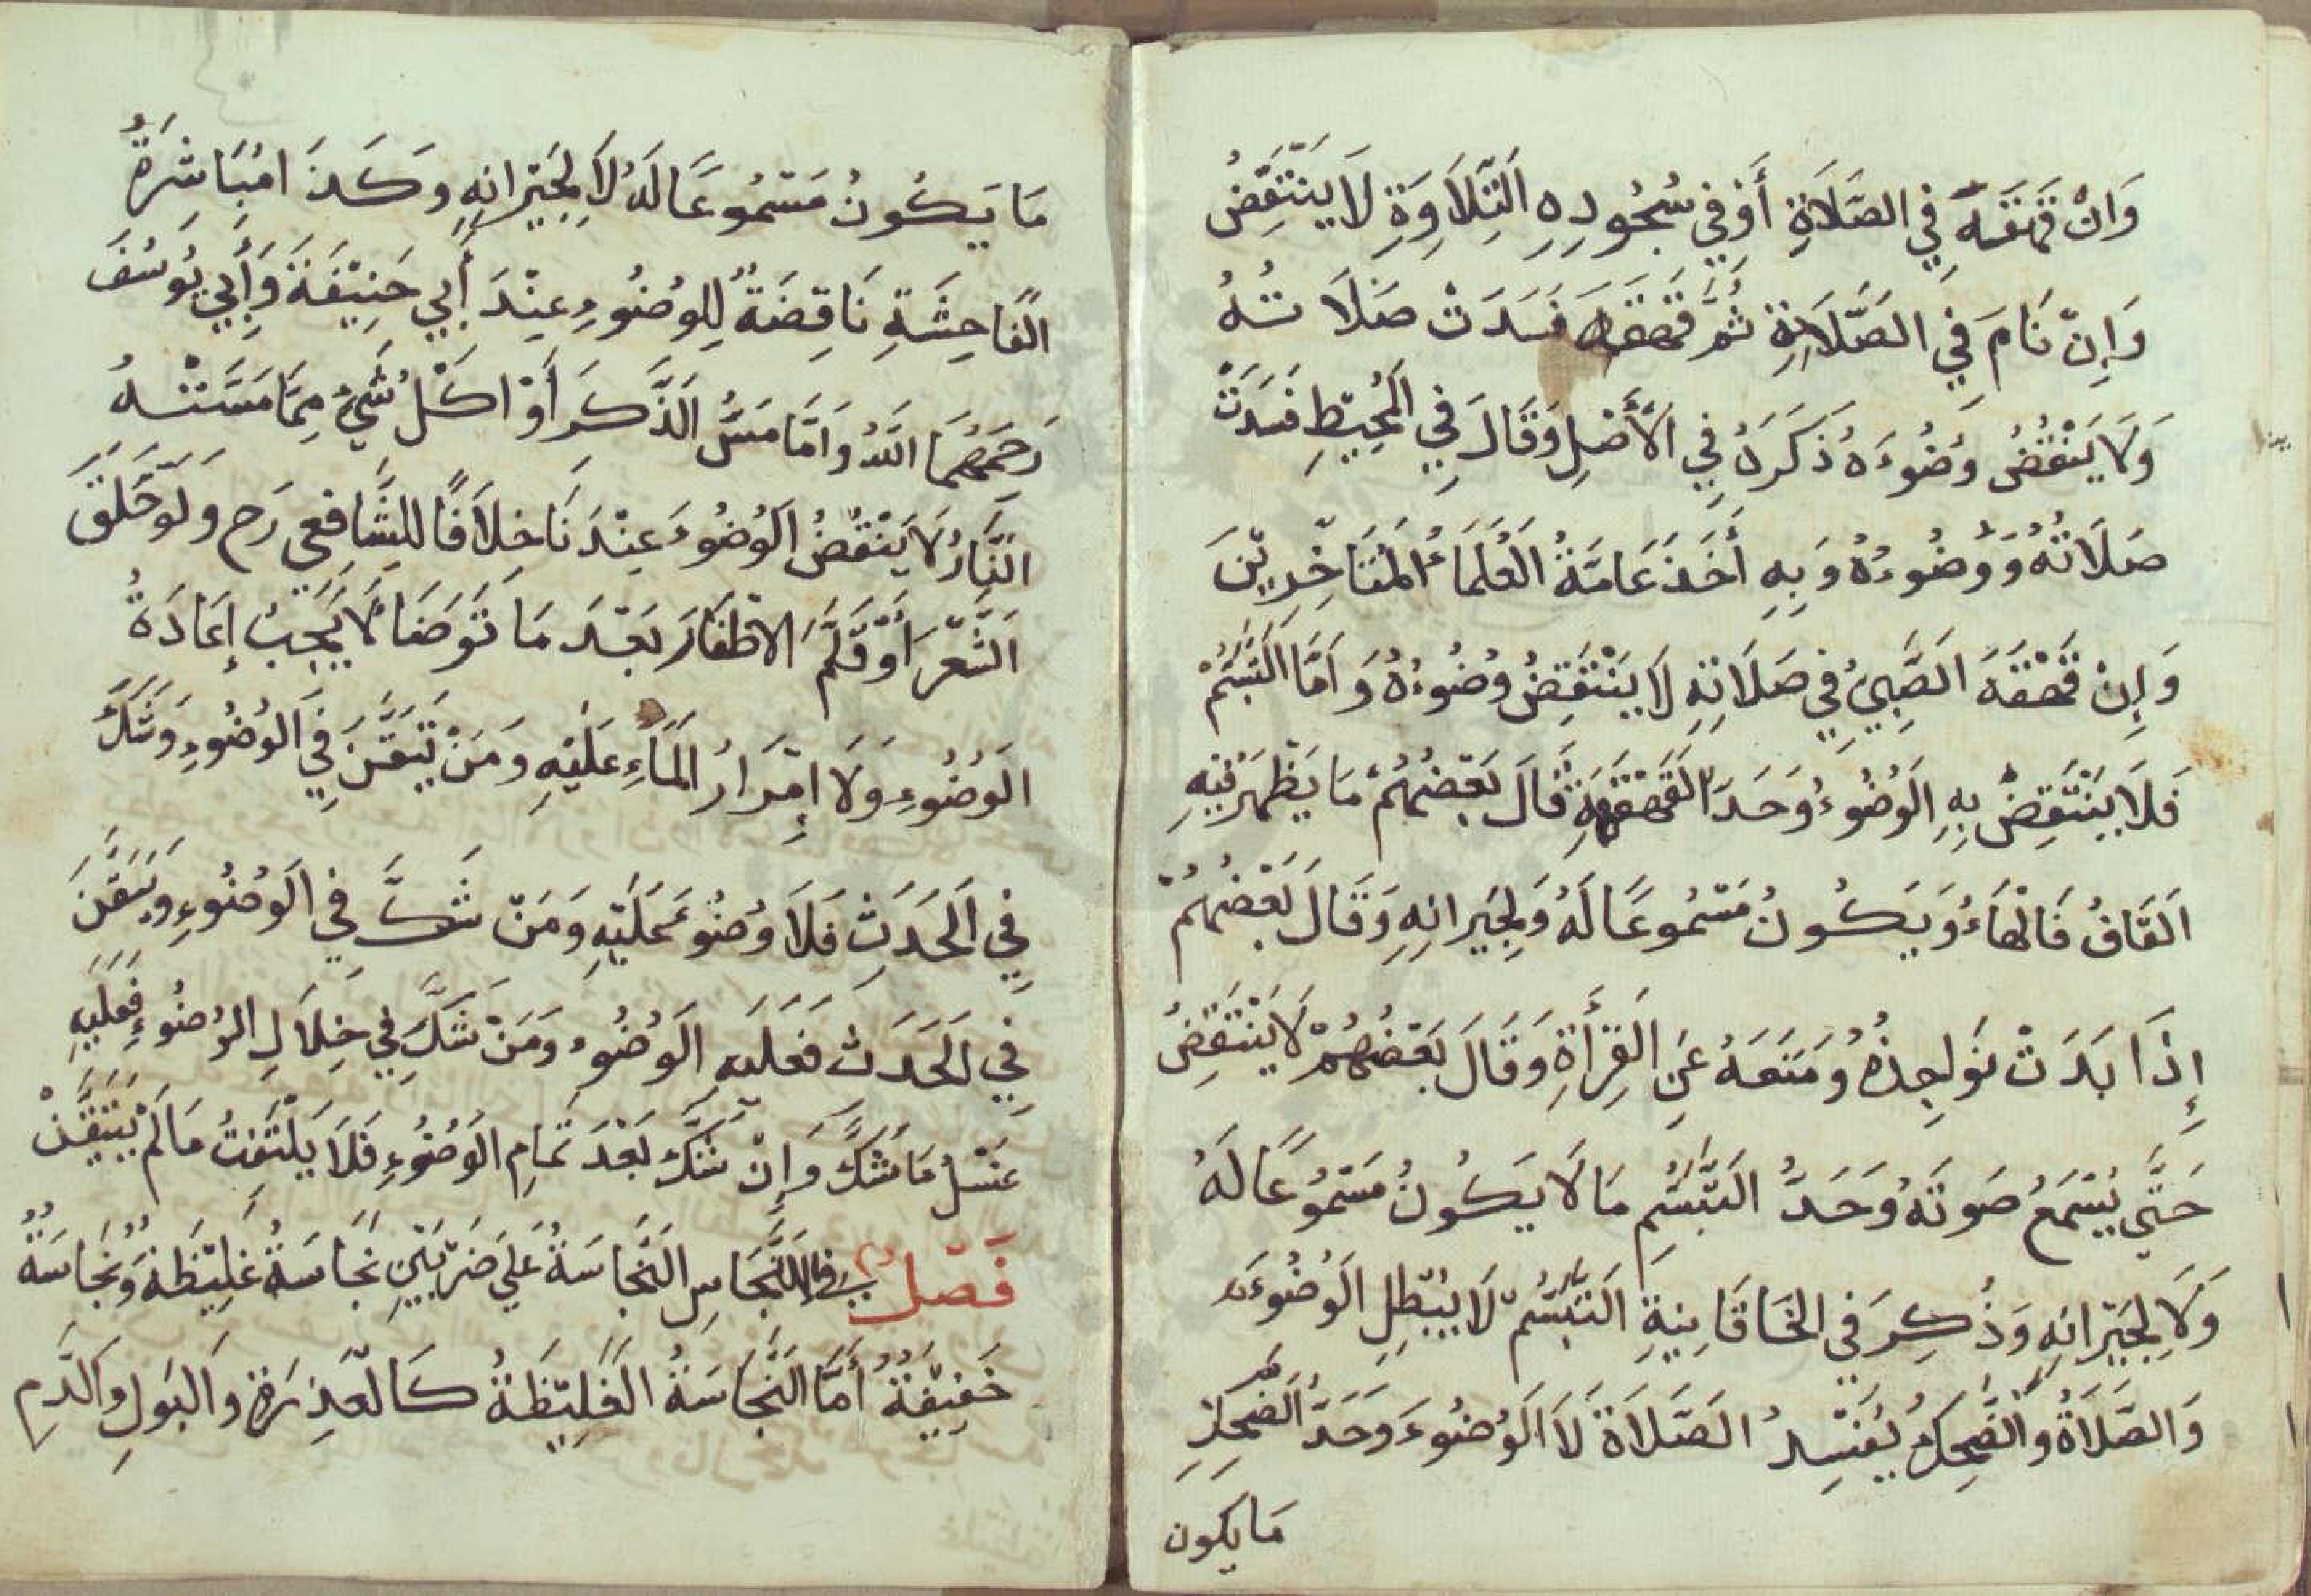 وَانْ قَهْقَهَ فِي الصَّلَاةِ أَوْ فِي سُجُودِهِ التِّلَاوَةِ لَا يَنْتَقِضُ
وَإِنْ نَامَ فِي الصَّلَاةِ ثُمَّ قَهْقَهَ فَسَدَتْ صَلَاتُهُ
وَلَا يَنْقُضُ وُضُوءَهُ ذَكَرَهُ فِي الْأَصْلِ وَقَالَ فِي الْمُحِيْطِ فَسَدَتْ
صَلَاتُهُ وَوُضُوءُهُ وَبِهِ أَخَذَ عَامَّةُ الْعُلَمَاءُ الْمُتَاَخِّرِيْنَ
وَإِنْ قَهْقَهَ الصَّبِيُّ فِي صَلَاتِهِ لَا يَنْتَقِضُ وُضُوءُهُ وَاَمَّا التَّبَسُّمُ
فَلَا يَنْتَقِضُ بِهِ الْوُضُوءُ وَحَدَّ الْقَهْقَهَةِ قَالَ بَعْضُهُمْ مَا يَظْهَرُ فِيْهِ
الْقَافُ فَالْهَاءُ وَيَكُونُ مَسْمُوعًا لَهُ وَلِجِيْرَانِهِ وَقَالَ بَعْضُهُمْ
إِذَا بَدَتْ نَوَاجِذُهُ وَمَنَعَهُ عَنِ الْقِرْأَةِ وَقَالَ بَعْضُهُمْ لَا يَنْتَقِضُ
حَتَّي يُسْمَعُ صَوتَهُ وَحَدَّ التَّبَسُّمِ مَا لَا يَكُونُ مَسْمُوعًا لَهُ
وَلَا لِجِيْرَانِهِ وَذُكِرَ فِي الْخَاقَانِيَةِ التَّبَسُّمْ لَا يُبْطِلِ الْوُضُوءَ
وَالصَّلَاةُ وَالضَّحِكُ يُفْسِدُ الصَّلَاةَ لَا الْوُضُوءَ وَحَدَّ الضَّحِكِ
مَا يكون
مَا يَكُونُ مَسْمُوعًا لَهُ لَا لِجِيْرَانِهِ وَكَذَا مُبَاشِرَةُ
الْفَاحِشَةِ نَاقِضَةٌ لِلوُضُوءِ عِنْدَ أَبِي حَنِيْفَةَ وَأَبِي يُوسُفَ
رَحِمَهُمَا اللّٰهُ وَاَمَّا مَسُّ الذَّكَرَ أَوْ اكْلُ شَيْءٍ مِمَّا مَسَّتْهُ
النَّارُ لَا يَنْقُضُ الْوُضُوءَ عِنْدَنَا خِلَافًا لِلشَّافِعِي رَح وَلَوْ حَلَقَ
الشَّعْرَ أَوْ قَلَّمَ الْاظْفَارَ بَعْدَ مَا تَوَضَا لَا يَجِبُ إِعَادَةُ
الْوُضُوءِ وَلَا إِمْرَارُ الْمَاءِ عَلَيْهِ وَمَنْ تَيَقَّنَ فِي الْوُضُوءِ وَشَكَّ
فِي الْحَدَثِ فَلَا وُضُوءَ عَلَيْهِ وَمَنْ شَكَّ فِي الْوُضُوءِ وَتَيَقَّنَ
فِي الْحَدَثْ فَعَلَيهِ الْوُضُوءُ وَمَنْ شَكَّ فِي خِلَالِ الْوُضُوءِ فَعَلَيْهِ
غَسْلُ مَا شَكَّ وَإِنْ شَكَّ بَعْدَ تَمَامِ الْوُضُوءِ فَلَا يَلْتَفِتُ مَا لَمْ يَتَيَقَّنْ
فَصْلٌ فِي النَّجَاسِ النَّجَاسَةُ عَلَي ضَرْبَيْنِ نَجَاسَةُ غَلِيْظَةٌ وَنَجَاسَةٌ
خَفِيْفَةٌ أَمَّا النَّجَاسَةُ الْغَلِيْظَةُ كَالْعَذِرَةِ وَالْبَولِ وَالدَّمِ